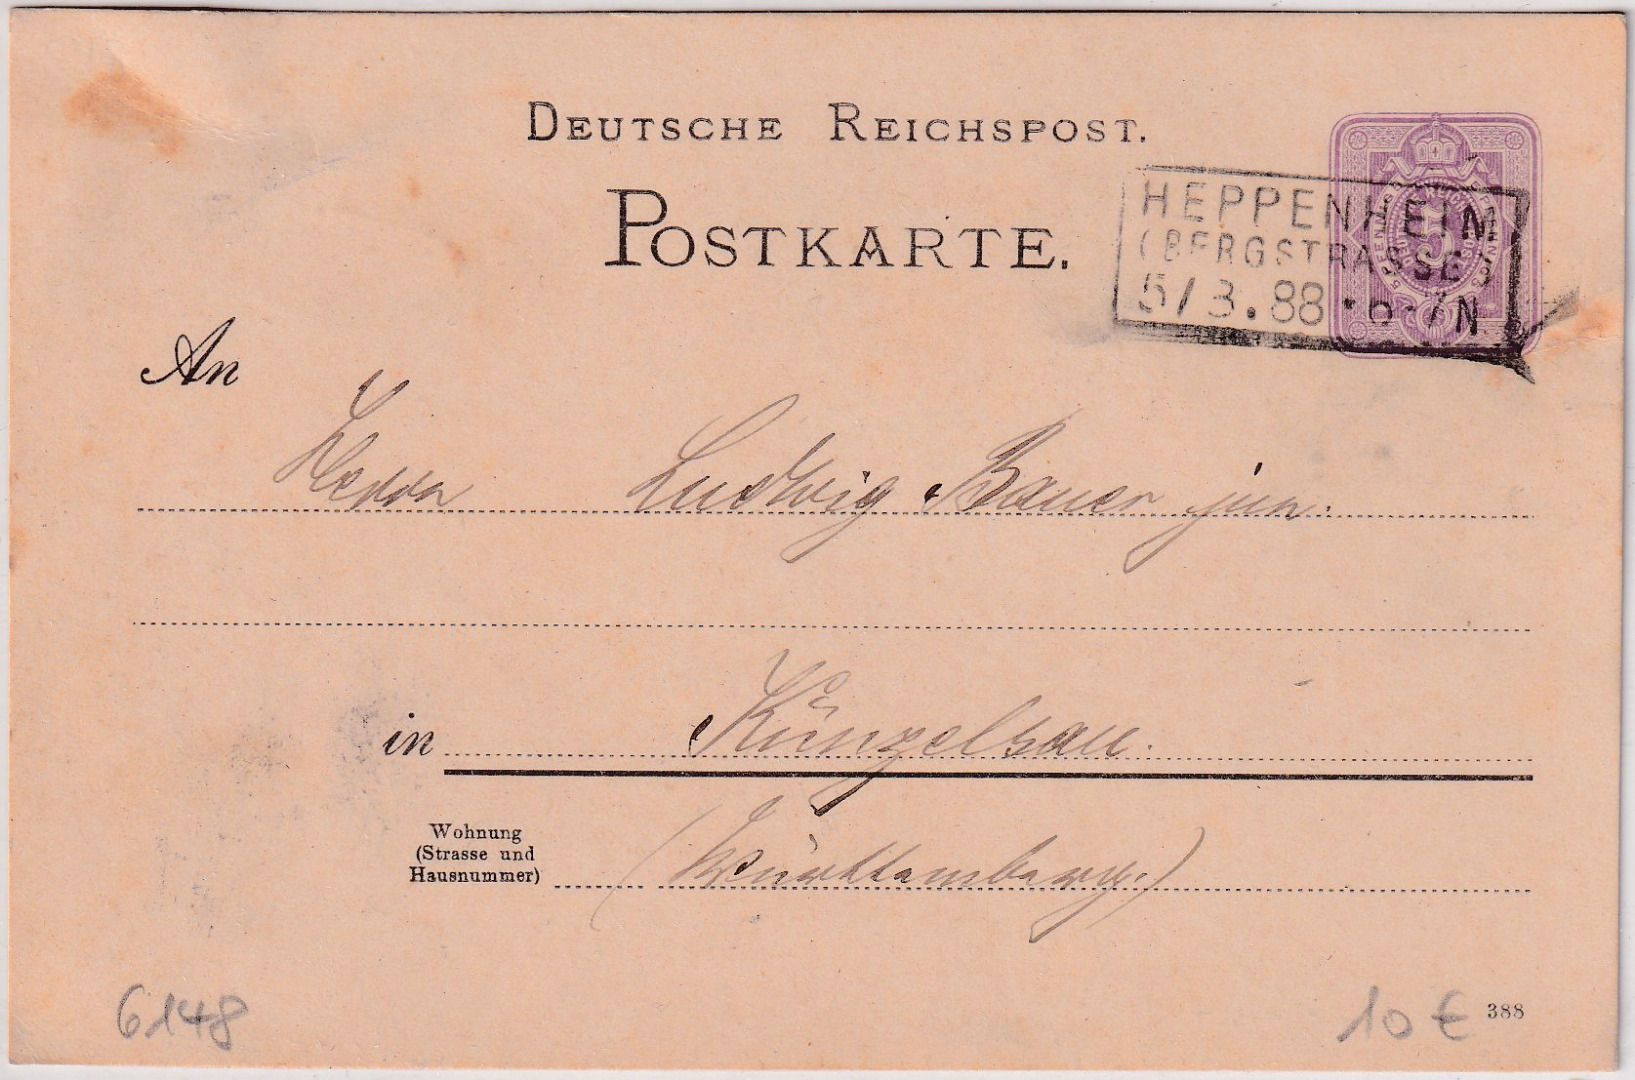 DEUTSCHE REICHSPOST.
POSTKARTE.
HEPPENHEIM
(BERGSTRASSE)
5/3.88 * 6-7N
5
An
Herrn Ludwig Bauer jun.
in Künzelsau.
Wohnung
(Strasse und
Hausnummer)
(Württemberg.)
6148
10 €
388